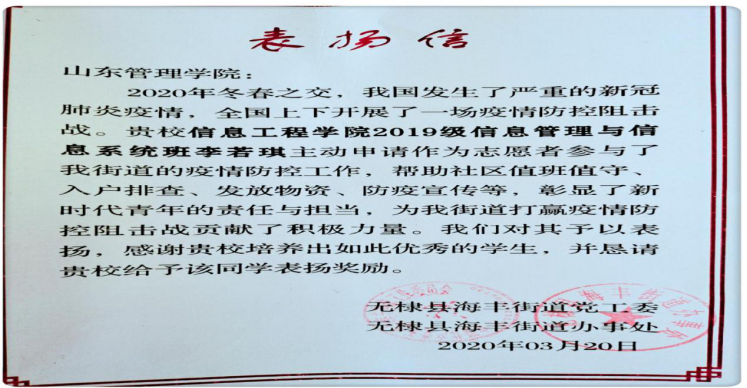 表扬信
山东管理学院：
2020年冬春之交，我国发生了严重的新冠
肺炎疫情，全国上下开展了一场疫情防控阻击
战。贵校信息工程学院2019级信息管理与信
息系统班李若琪主动申请作为志愿者参与了
我街道的疫情防控工作，帮助社区值班值守、
入户排查、发放物资、防疫宣传等，彰显了新
时代青年的责任与担当，为我街道打赢疫情防
控阻击战贡献了积极力量。我们对其予以表
扬，感谢贵校培养出如此优秀的学生，并恳请
贵校给予该同学表扬奖励。
无棣县海丰街道党工委
无棣县海丰街道办事处
2020年03月20日